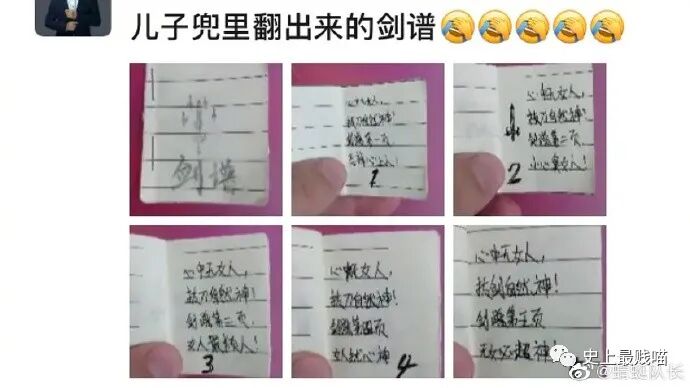 儿子兜里翻出来的剑谱
剑谱
心中无女人,
拔刀自然神!
剑谱第一页
忘掉心上人!
1
心中无女人,
拔刀自然神!
剑谱第二页
2
心中无女人,
拔刀自然神!
剑谱第三页,
3
心中无女人,
拔刀自然神!
剑谱第四页
4
心中无女人,
拔剑自然神!
剑谱第五页
无女必超神!
史上最贱喵
@蜻蜓队长